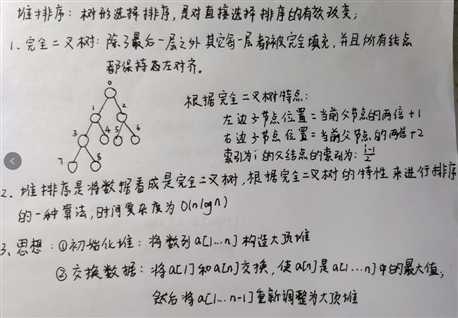 堆排序：树形选择排序，是对直接选择排序的有效改变；
1、完全二叉树：除了最后一层之外其它每一层都被完全填充，并且所有结点
都保持向左对齐。
0
1 2
3 4 5 6
7 8
根据完全二叉树特点：
左边子节点位置=当前父节点的两倍+1
右边子节点位置=当前父节点的两倍+2
索引为i的父结点的索引为：i-1/2
2、堆排序是将数据看成是完全二叉树，根据完全二叉树的特性来进行排序
的一种算法，时间复杂度为O(nlogn)
3、思想：①初始化堆：将数列a[1...n]构造大顶堆
②交换数据：将a[1]和a[n]交换，使a[n]是a[1...n]中的最大值，
然后将a[1...n-1]重新调整为大顶堆